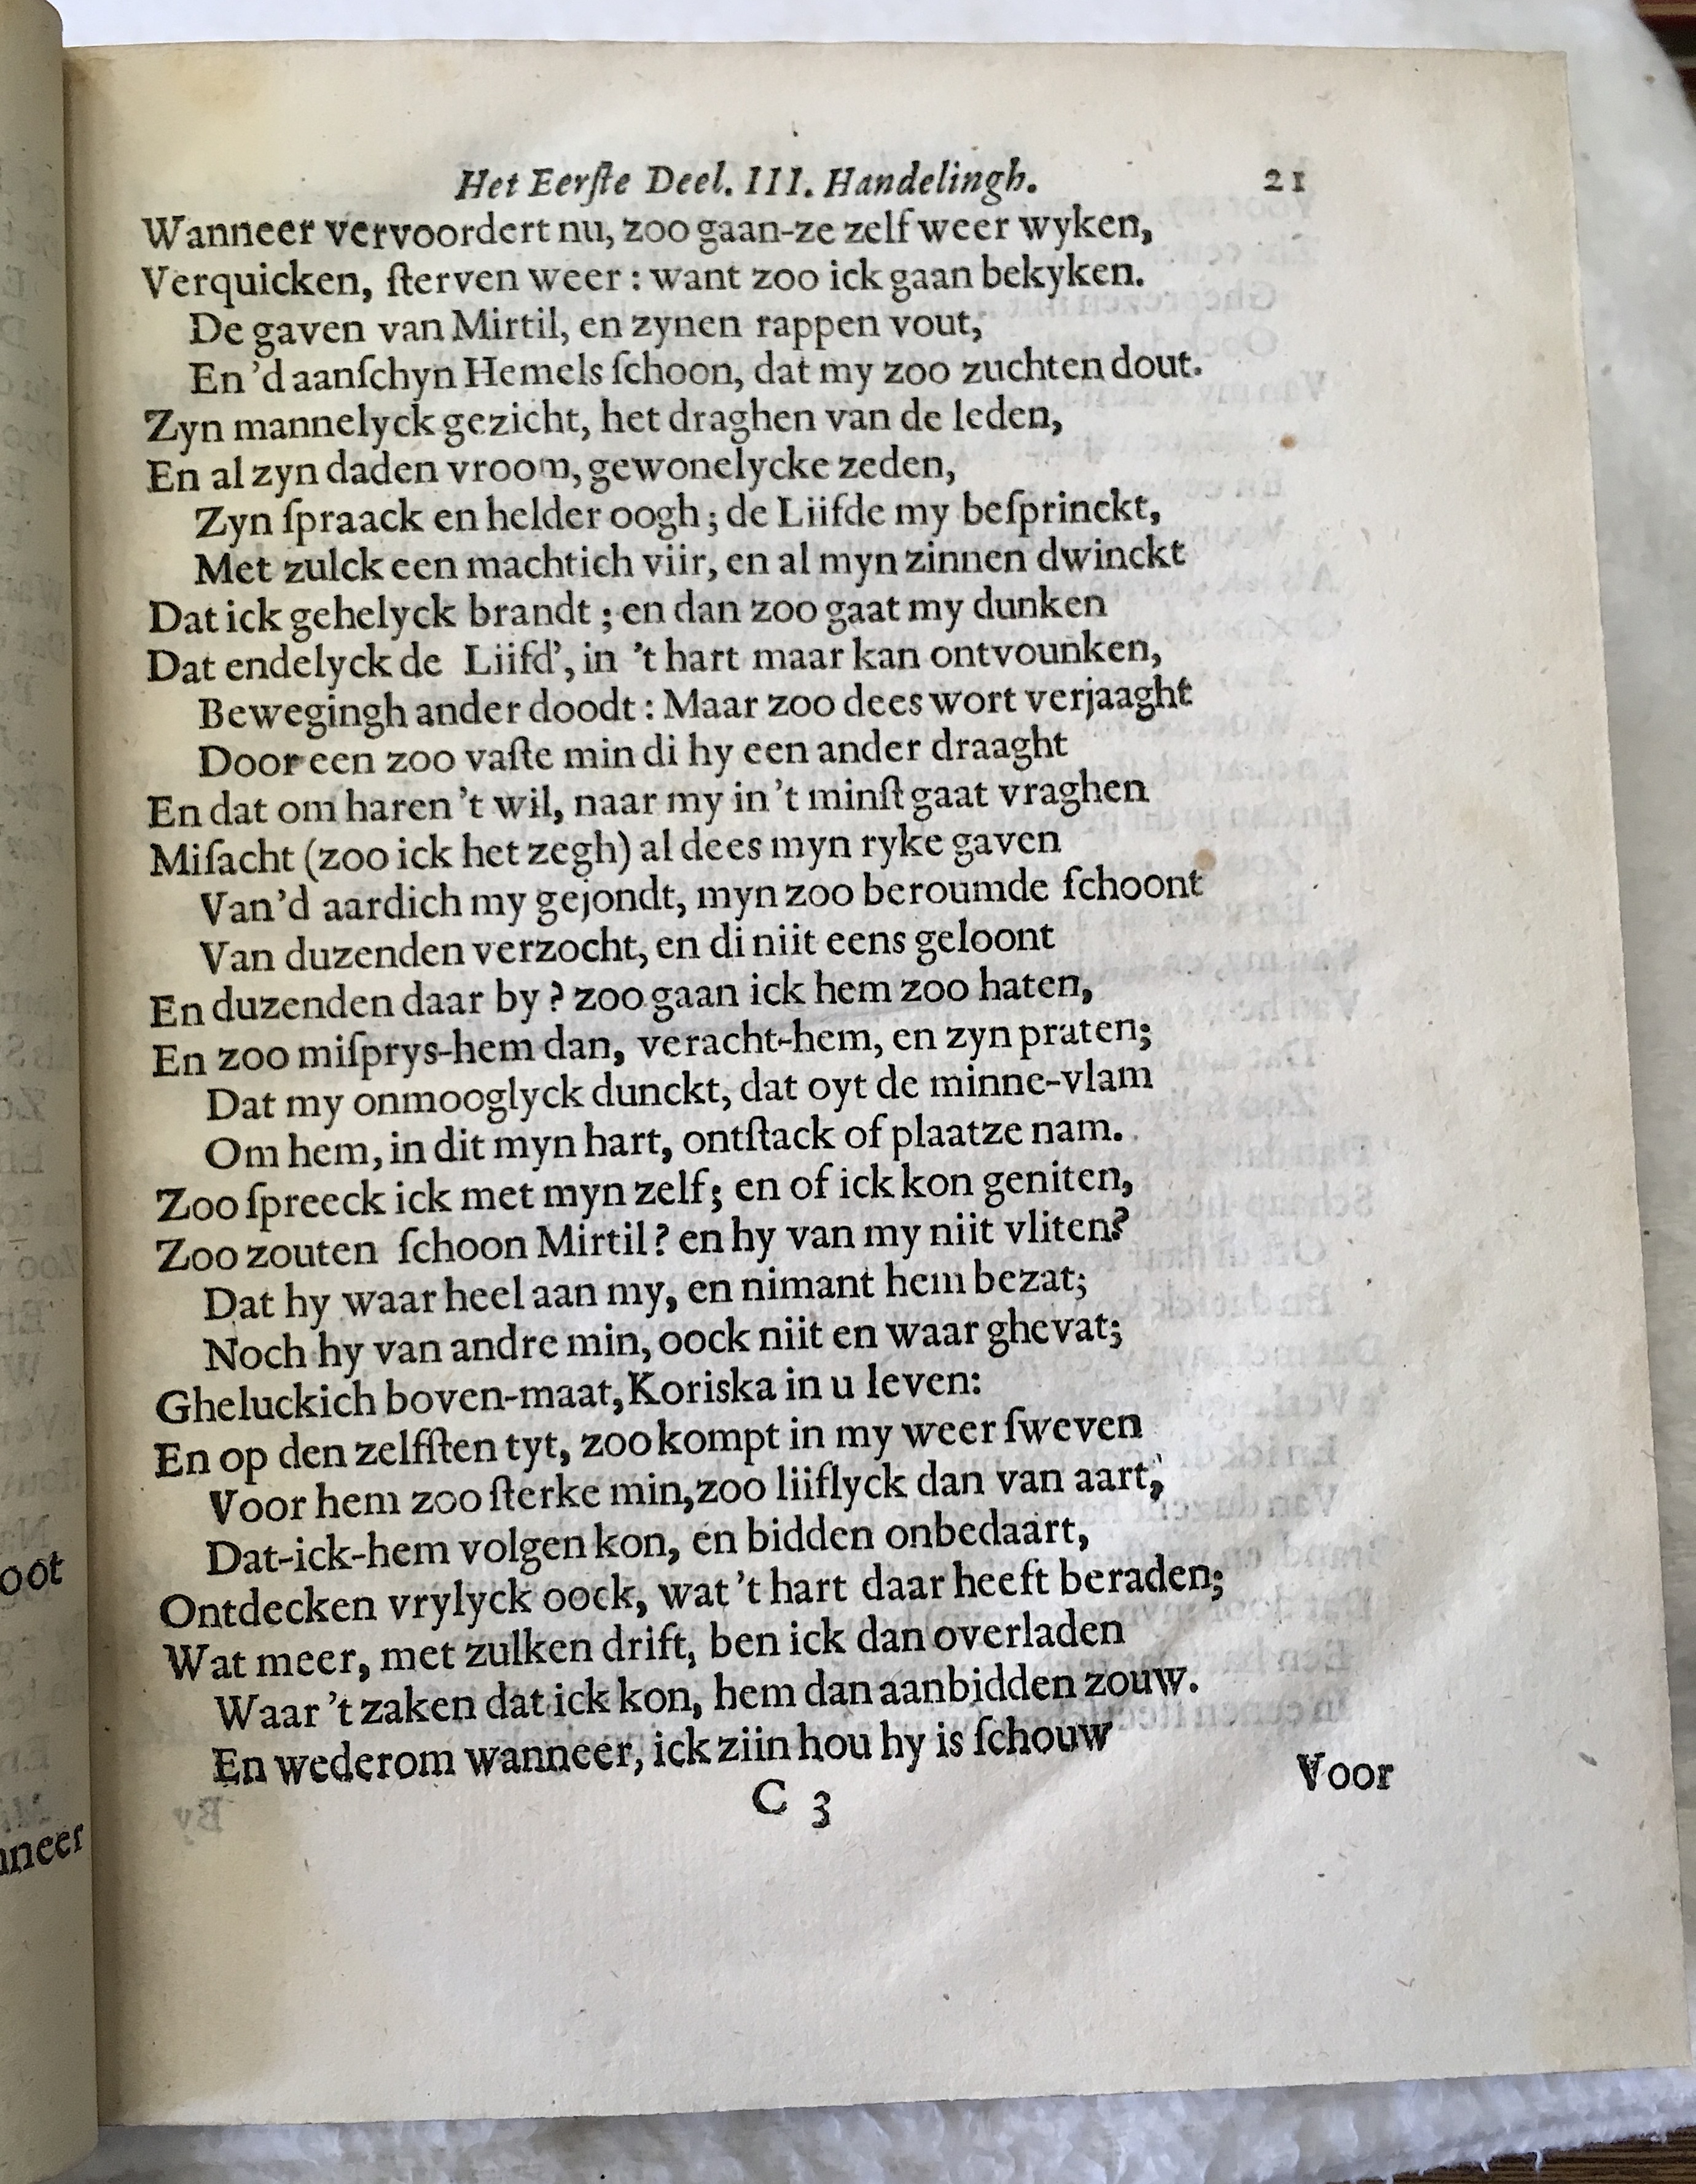 Het Eerſte Deel. III. Handelingh. 21
Wanneer vervoordert nu, zoo gaan-ze zelf weer wyken,
Verquicken, ſterven weer : want zoo ick gaan bekyken.
De gaven van Mirtil, en zynen rappen vout,
En 'd aanſchyn Hemels ſchoon, dat my zoo zuchten dout.
Zyn mannelyck gezicht, het draghen van de leden,
En al zyn daden vroom, gewonelycke zeden,
Zyn ſpraack en helder oogh ; de Liifde my beſprinckt,
Met zulck een machtich viir, en al myn zinnen dwinckt
Dat ick gehelyck brandt ; en dan zoo gaat my dunken
Dat endelyck de Liifd', in 't hart maar kan ontvounken,
Bewegingh ander doodt : Maar zoo dees wort verjaaght
Door een zoo vaſte min di hy een ander draaght
En dat om haren 't wil, naar my in 't minſt gaat vraghen
Miſacht (zoo ick het zegh) al dees myn ryke gaven
Van'd aardich my gejondt, myn zoo beroumde ſchoont
Van duzenden verzocht, en di niit eens geloont
En duzenden daar by ? zoo gaan ick hem zoo haten,
En zoo miſprys-hem dan, veracht-hem, en zyn praten;
Dat my onmooglyck dunckt, dat oyt de minne-vlam
Om hem, in dit myn hart, ontſtack of plaatze nam.
Zoo ſpreeck ick met myn zelf; en of ick kon geniten,
Zoo zouten ſchoon Mirtil? en hy van my niit vliten?
Dat hy waar heel aan my, en nimant hem bezat;
Noch hy van andre min, oock niit en waar ghevat;
Gheluckich boven-maat, Koriska in u leven:
En op den zelfſten tyt, zoo kompt in my weer ſweven
Voor hem zoo ſterke min, zoo liiflyck dan van aart,
Dat-ick-hem volgen kon, en bidden onbedaart,
Ontdecken vrylyck oock, wat 't hart daar heeft beraden;
Wat meer, met zulken drift, ben ick dan overladen
Waar 't zaken dat ick kon, hem dan aanbidden zouw.
En wederom wanneer, ick ziin hou hy is ſchouw
C 3 Voor
oot
nneer